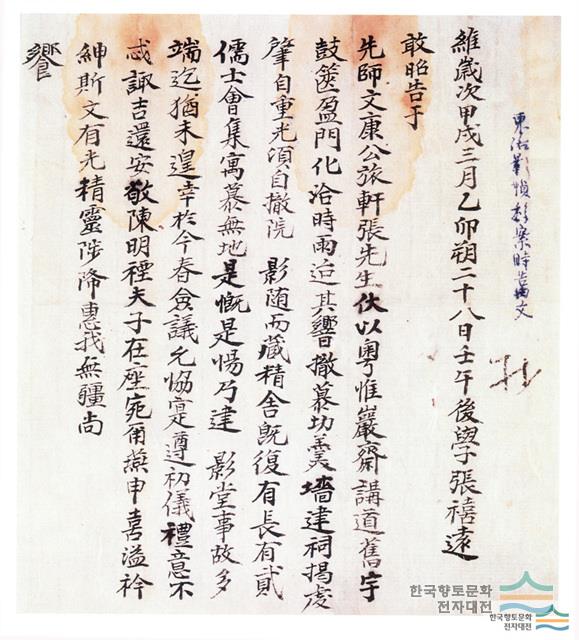 維歲次甲戌三月乙卯朔二十八日壬午後學張禧遠
敢昭告于
先師文康公旅軒張先生伏以粤惟巖齋講道舊宇
鼓篋盈門化洽時雨迨其響撤慕切羹墻建祠揭虔
肇自重光湏自撤院 影随而藏精舍旣復有長有貳
儒士會集寓慕無地是慨是惕乃建 影堂事故多
端迄猶未遑幸於今春僉議允恊寔遵初儀禮意不
忒諏吉還安敬陳明禋夫子在座宛爾燕申喜溢衿
紳斯文有光精靈陟降惠我無疆尚
饗
東洛影幀移案時告由文
한국향토문화
전자대전
한국향토문화
전자대전